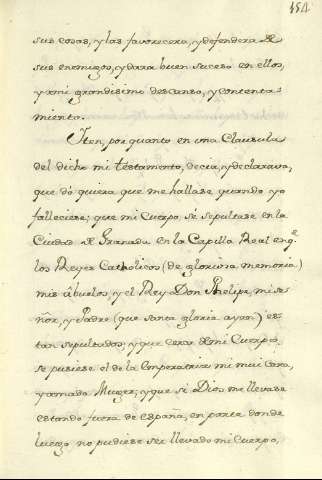 154.
sus cosas, y las favorecera, y defendera de
sus enemigos, y dara buen suceso en ellos,
y a mi grandisimo descanso, y contenta
miento.
Iten, por quanto en una Clausula
del dicho mi testamento, decia, y declarava,
que dò quiera que me hallase quando yo
falleciese; que mi Cuerpo se sepultase en la
Ciudad de Granada en la Capilla Real en q.e
los Reyes Catholicos (de gloriosa memoria)
mis âbuelos, y el Rey Don Phelipe, mi se-
ñor, y Padre (que santa gloria ayan) es-
tan sepultados; y que cerca de mi Cuerpo,
se pusiese el de la Emperatriz mi mui cara,
y amada Muger; y que si Dios me llevase
estando fuera de España, en parte donde
luego no pudiese ser llevado mi Cuerpo,